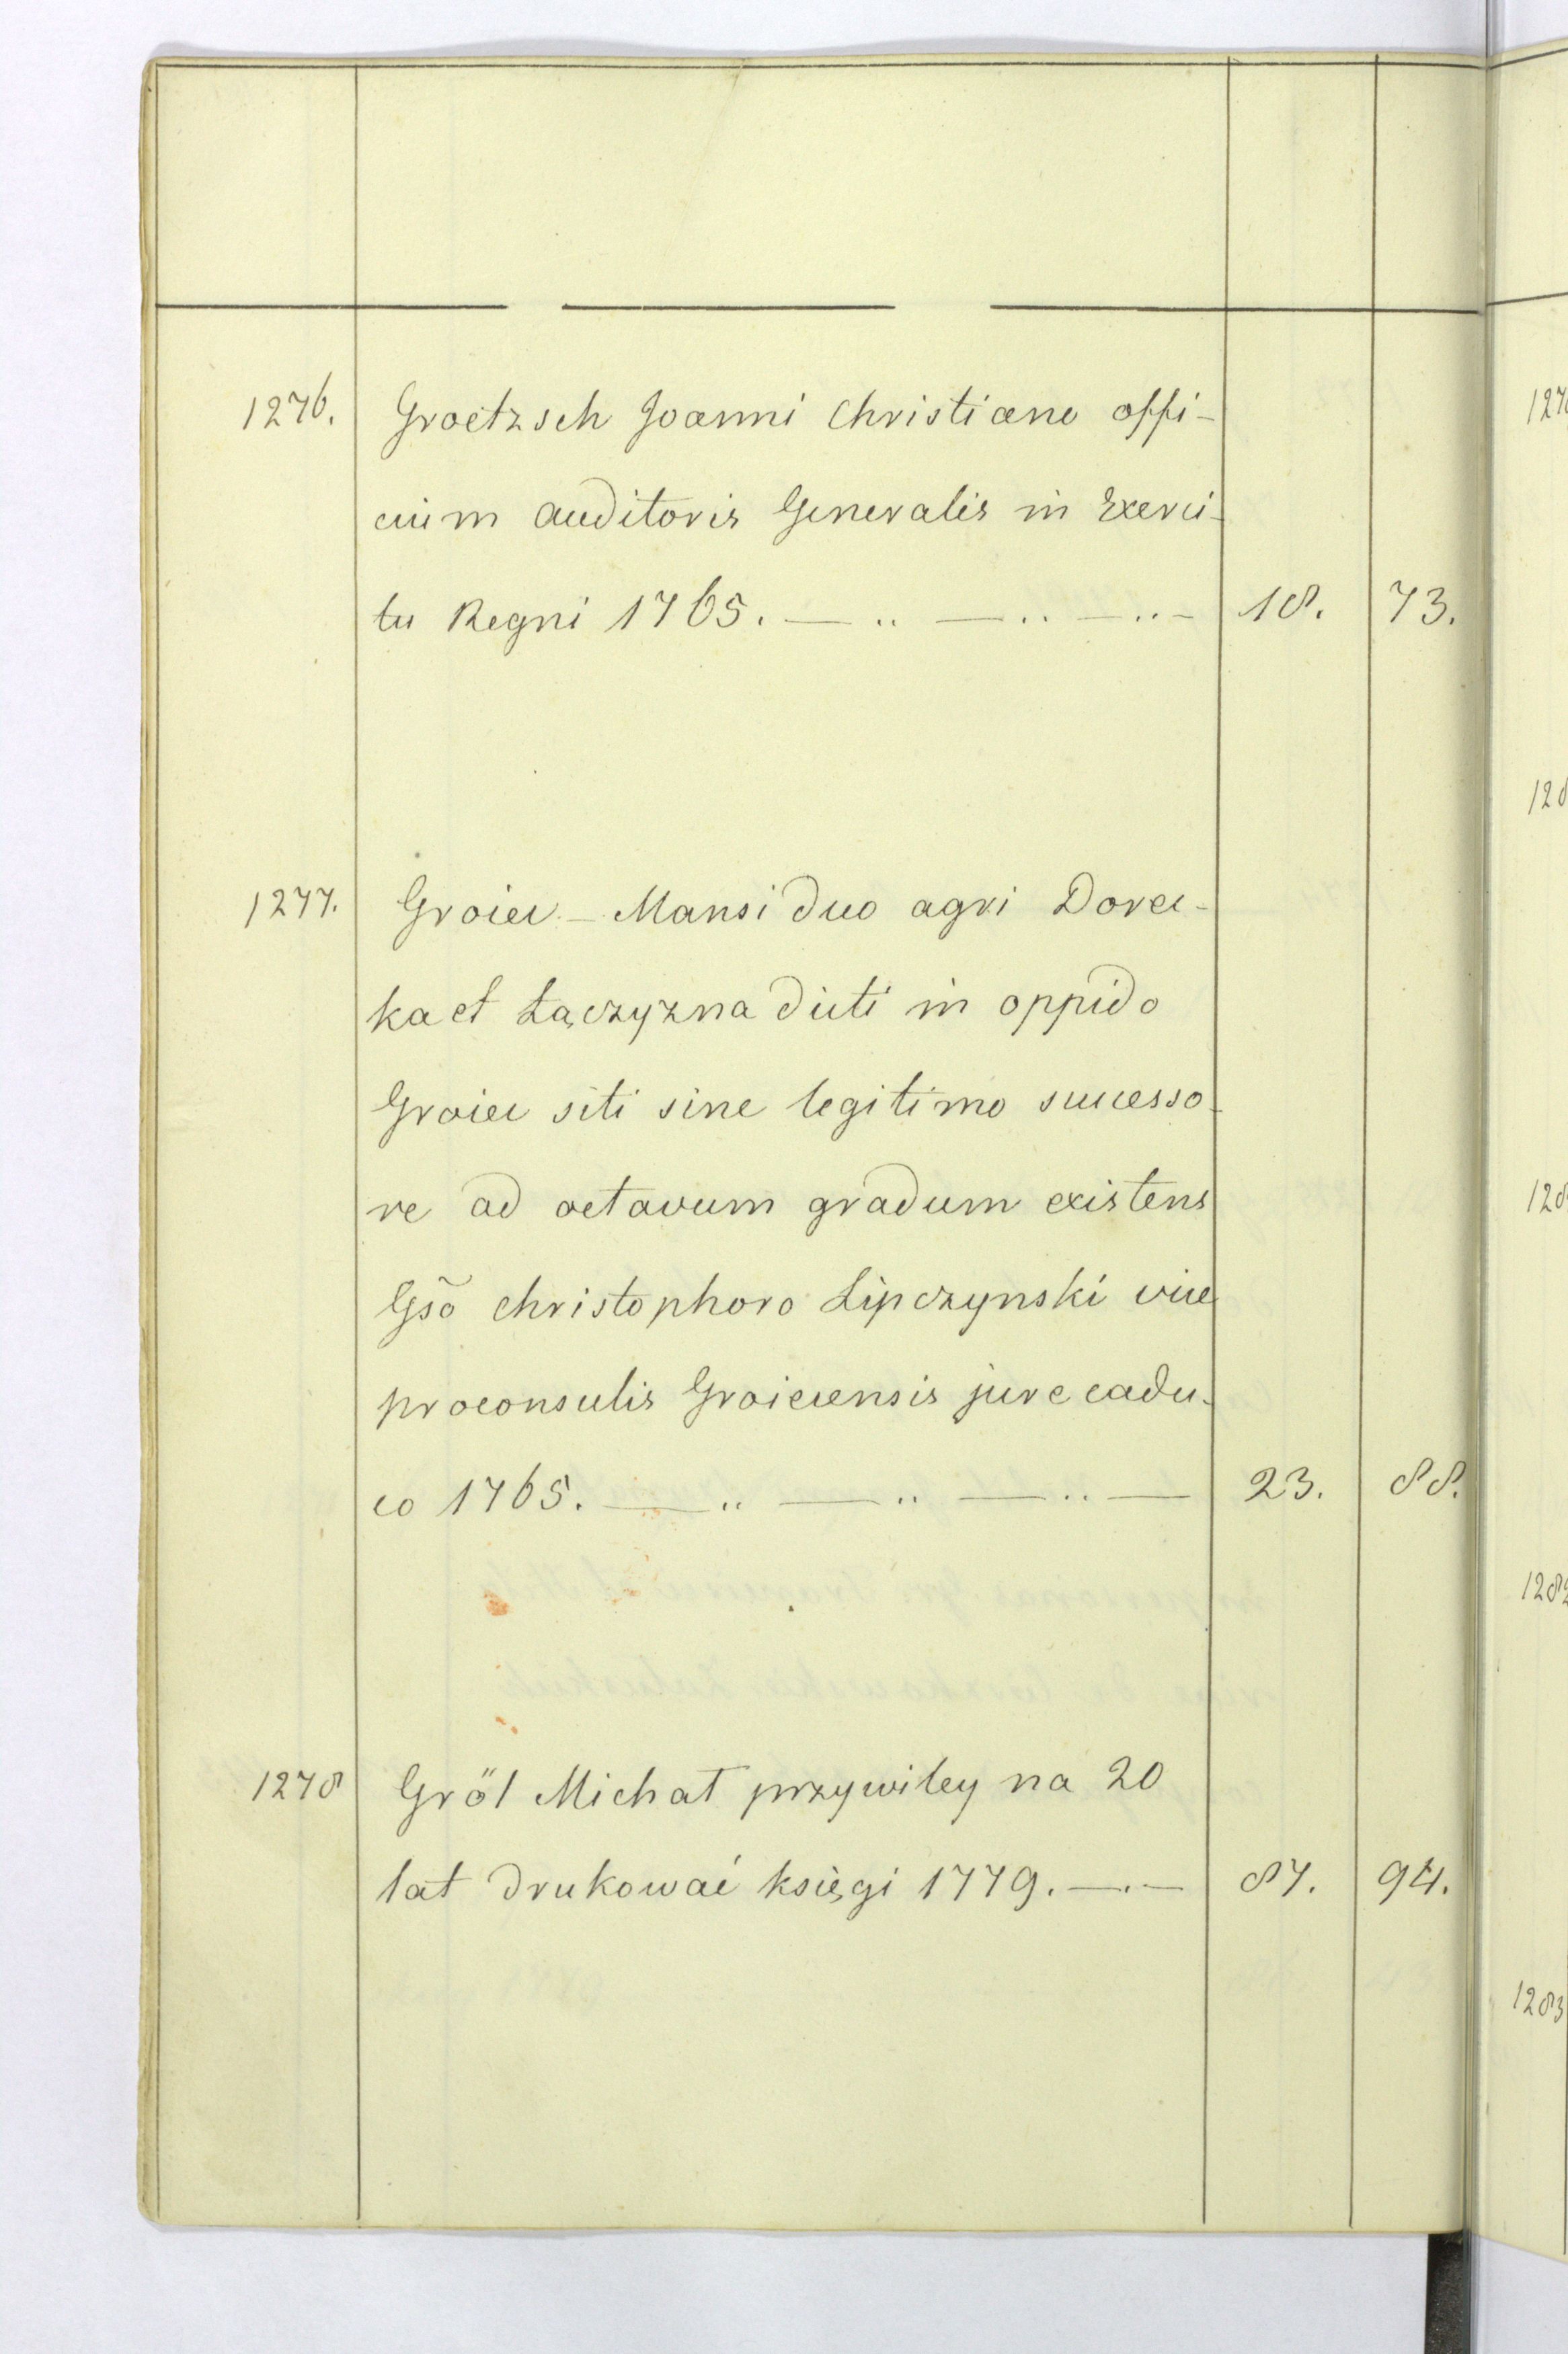 1276. Groetzsch Joanni Christiano offi-
cium Auditoris Generalis in Exerci-
tu Regni 1765. — .. — .. — .. — 18. 73.
1277. Groiec - Mansi duo agri Dorec-
ka et Łączyzna dicti in oppido
Groiec siti sine legitimo successo-
re ad octavum gradum existens
Gsõ Christophoro Lipczynski vice
proconsulis Groiecensis jure cadu-
co 1765. — .. — .. — .. — 23. 88.
1278 Gröl Michał przywiley na 20
lat drukować księgi 1779. — . — 87. 94.